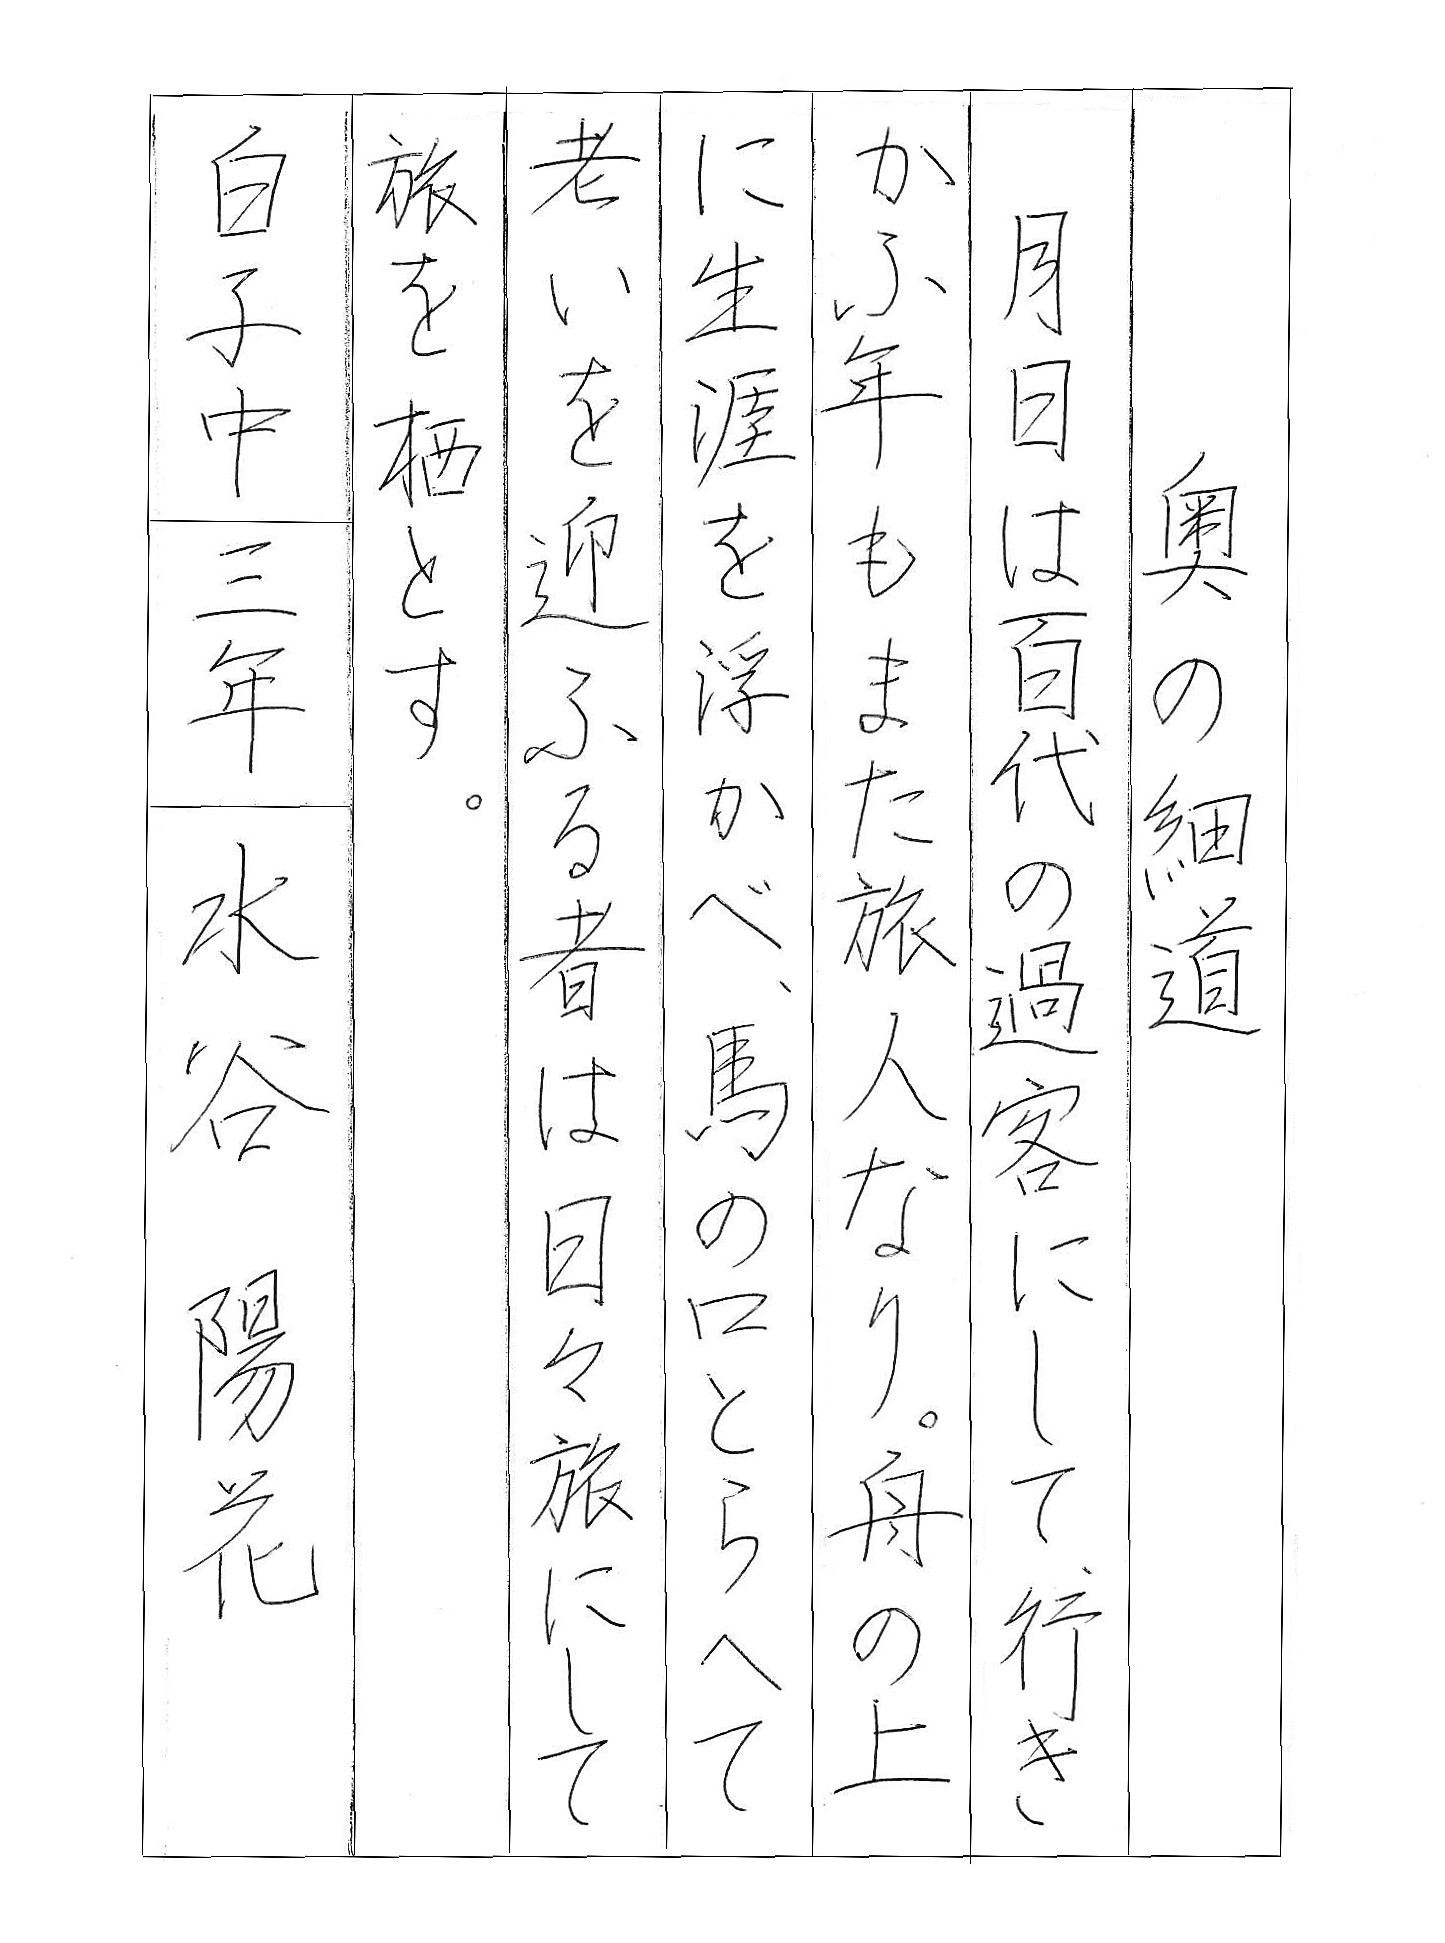 奥の細道
月日は百代の過客にして、行き
かふ年もまた旅人なり。舟の上
に生涯を浮かべ、馬の口とらへて
老いを迎ふる者は日々旅にして
旅を栖とす。
白子中 三年 水谷 陽花